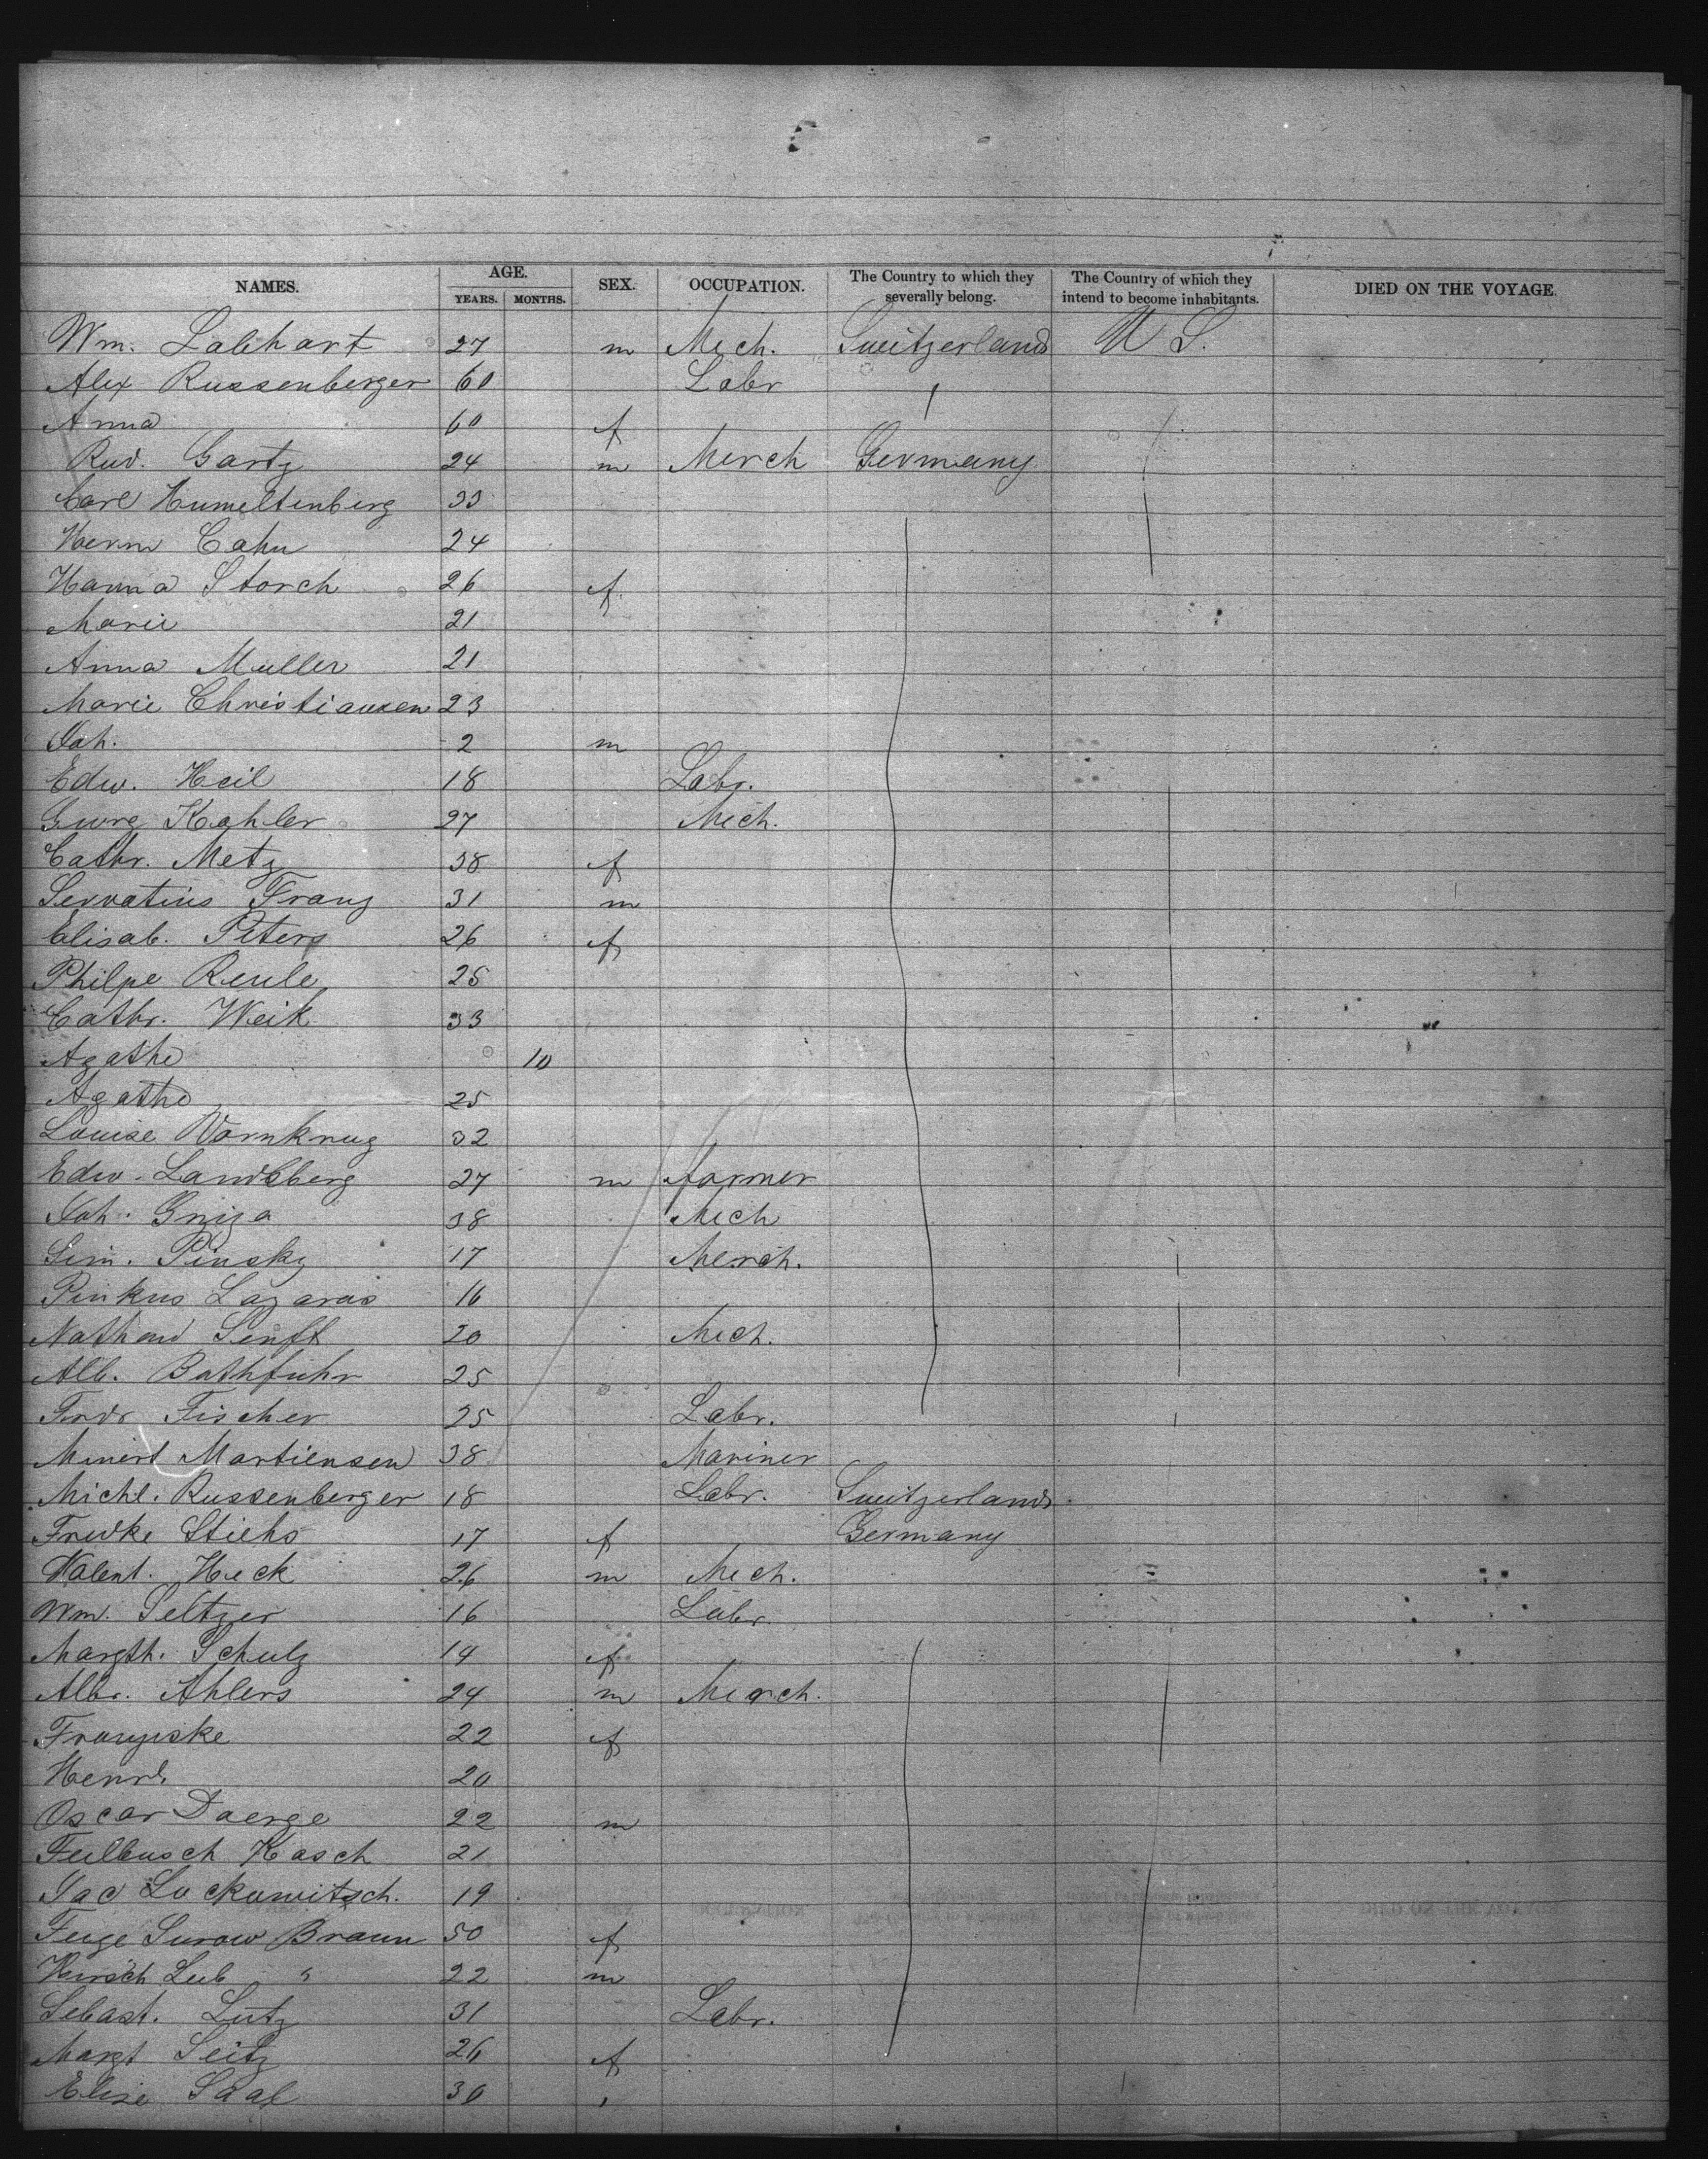 NAMES. AGE. YEARS. MONTHS. SEX. OCCUPATION. The Country to which they severally belong. The Country of which they intend to become inhabitants. DIED ON THE VOYAGE
Wm. Labhart 27 m Mech. Switzerland U S.
Alex Russenberger 60 Labr
Anna 60 f
Rud. Gartz 24 m Merch Germany
Carl Humeltenberg 33
Herm Cahn 24
Hanna Storch 26 f
Marie 21
Anna Muller 21
Marie Christiansen 23
Joh. 2 m
Edw. Heil 18 Labr.
Georg Kahler 27 Mech.
Cathr. Metz 38 f
Servatius Franz 31 m
Elisab. Peters 26 f
Philpe Reule 25
Cathr. Weik 33
Agathe 10
Agathe 25
Louise Vornkrug 32
Edw. Landsberg 27 m farmer
Joh. 38 Mech
Sim. Pinsky 17 Merch.
Pinkus Lazarus 16
Nathan Senft 20 Mech.
Alb. Bathfuhr 25
Fredr Fischer 25 Labr.
Martiensen 38 Mariner
Michl. Russenberger 18 Labr. Switzerland
Fredke Stiehs 17 f Germany
Valent. Heck 26 m Mech.
Wm. Seltzer 16 Labr
Margth. Schulz 14 f
Albr. Ahlers 24 m Merch.
Franziske 22 f
Henr. 20
Oscar Daerge 22 m
Feilbusch Kasch 21
Jac Lockowitsch. 19
Feige Surow Braun 50 f
Hirsch Leib " 22 m
Sebast. Lutz 31 Labr.
Margt Seitz 26 f
Elise Saal 30